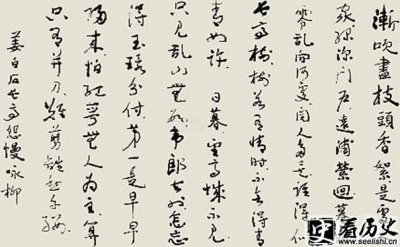 漸吹盡枝頭香絮是處
家綠深門戶遠浦縈迴暮
零亂向何處閱人多矣誰得似
長亭樹樹若有情時不會得青
青如許 日暮望高城不見
只見亂山無數韋郎去也怎忘
得玉環分付第一是早早
歸來怕紅萼無人為主算
只有并刀難剪離愁千縷
姜白石長亭怨慢詠柳
看历史
www.seelishi.cn